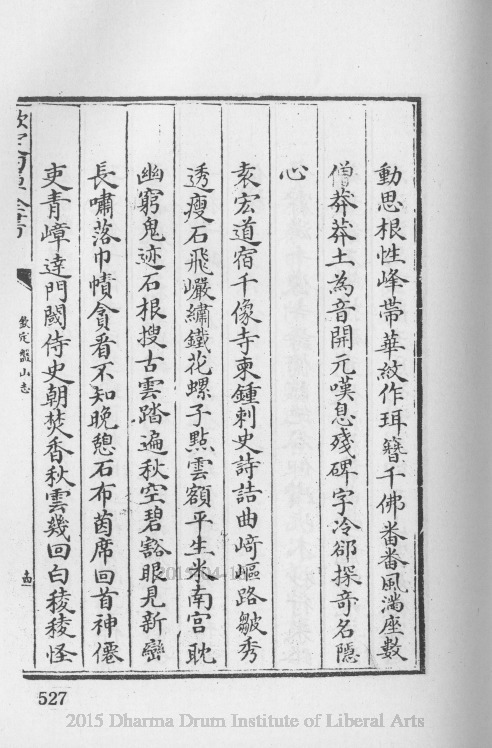 動思根性峰帶華紋作珥簪千佛番番風滿座數
僧莽莽土為音開元嘆息殘碑字冷卻探奇名隱
心
袁宏道宿千像寺柬鍾刺史詩詰曲﨑嶇路皺秀
透瘦石飛巗繡鐵花螺子點雲額平生米南宮耽
幽窮鬼迹石根搜古雲踏遍秋空碧豁眼見新巒
長嘯落巾幘貪看不知晚憩石布茵席回首神僊
吏青嶂達門閾侍史朝焚香秋雲幾回白稜稜怪
欽定四庫全書
欽定盤山志
527
2015/04/1
2015 Dharma Drum Institute of Liberal Arts